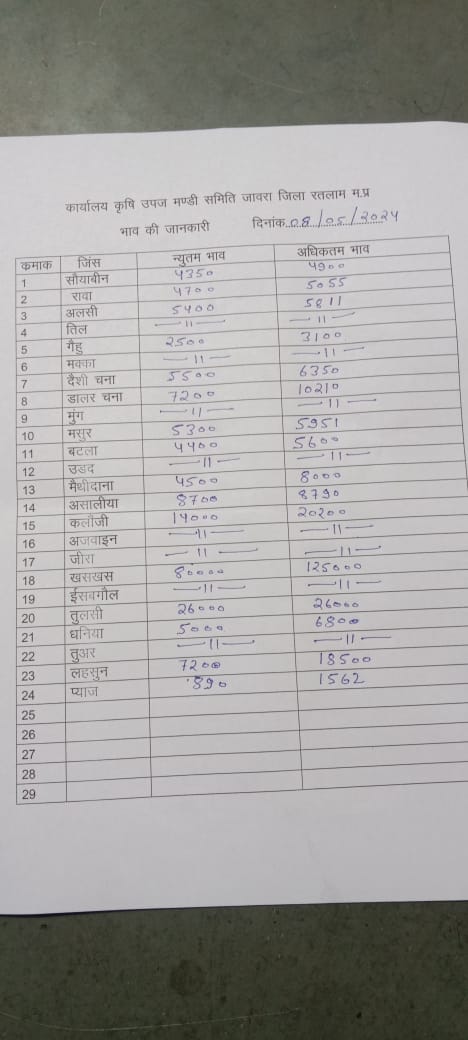 कार्यालय कृषि उपज मण्डी समिति जावरा जिला रतलाम म.प्र
भाव की जानकारी दिनांक 08/05/2024
कमाक जिंस न्युतम भाव अधिकतम भाव
1 सौयाबीन 4350 4900
2 रावा 4700 5055
3 अलसी 5400 5811
4 तिल —11— —11—
5 गैहु 2500 3100
6 मक्का —11— —11—
7 दैशी चना 5500 6350
8 डालर चना 7200 10210
9 मुंग —11— —11—
10 मसुर 5300 5951
11 बटला 4400 5600
12 उडद —11— —11—
13 मैथीदाना 4500 8000
14 असालीया 8700 8790
15 कलौजी 14000 20200
16 अजवाइन —11— —11—
17 जीरा —11— —11—
18 खसखस 80000 125000
19 ईसबगौल —11— —11—
20 तुलसी 26000 26000
21 धनिया 5000 6800
22 तुअर —11— —11—
23 लहसुन 7200 18500
24 प्याज 890 1562
25
26
27
28
29